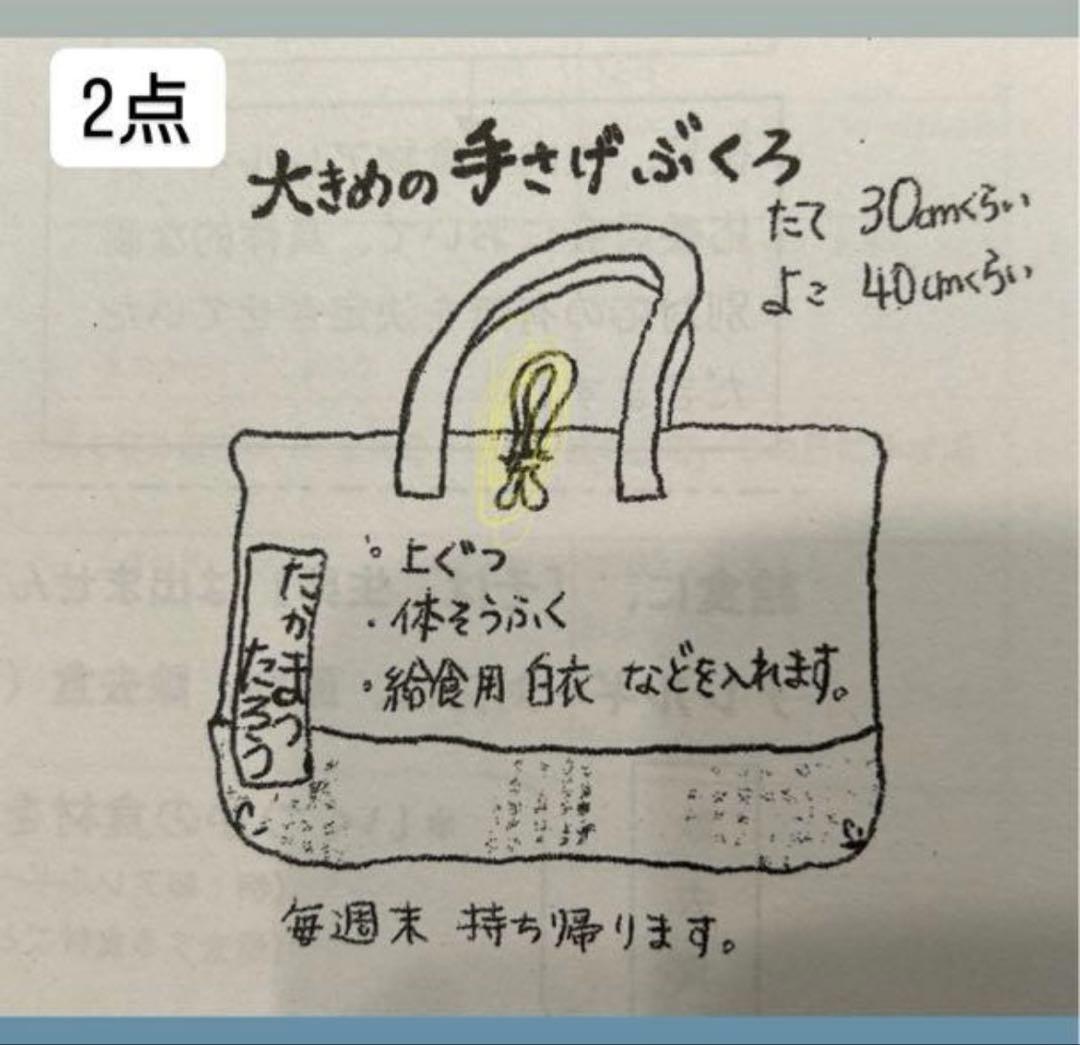 2点
大きめの手さげぶくろ
たて 30cmくらい
よこ 40cmくらい
。上ぐつ
・体そうふく
・給食用 白衣 などを入れます。
たかまつ
たろう
毎週末 持ち帰ります。